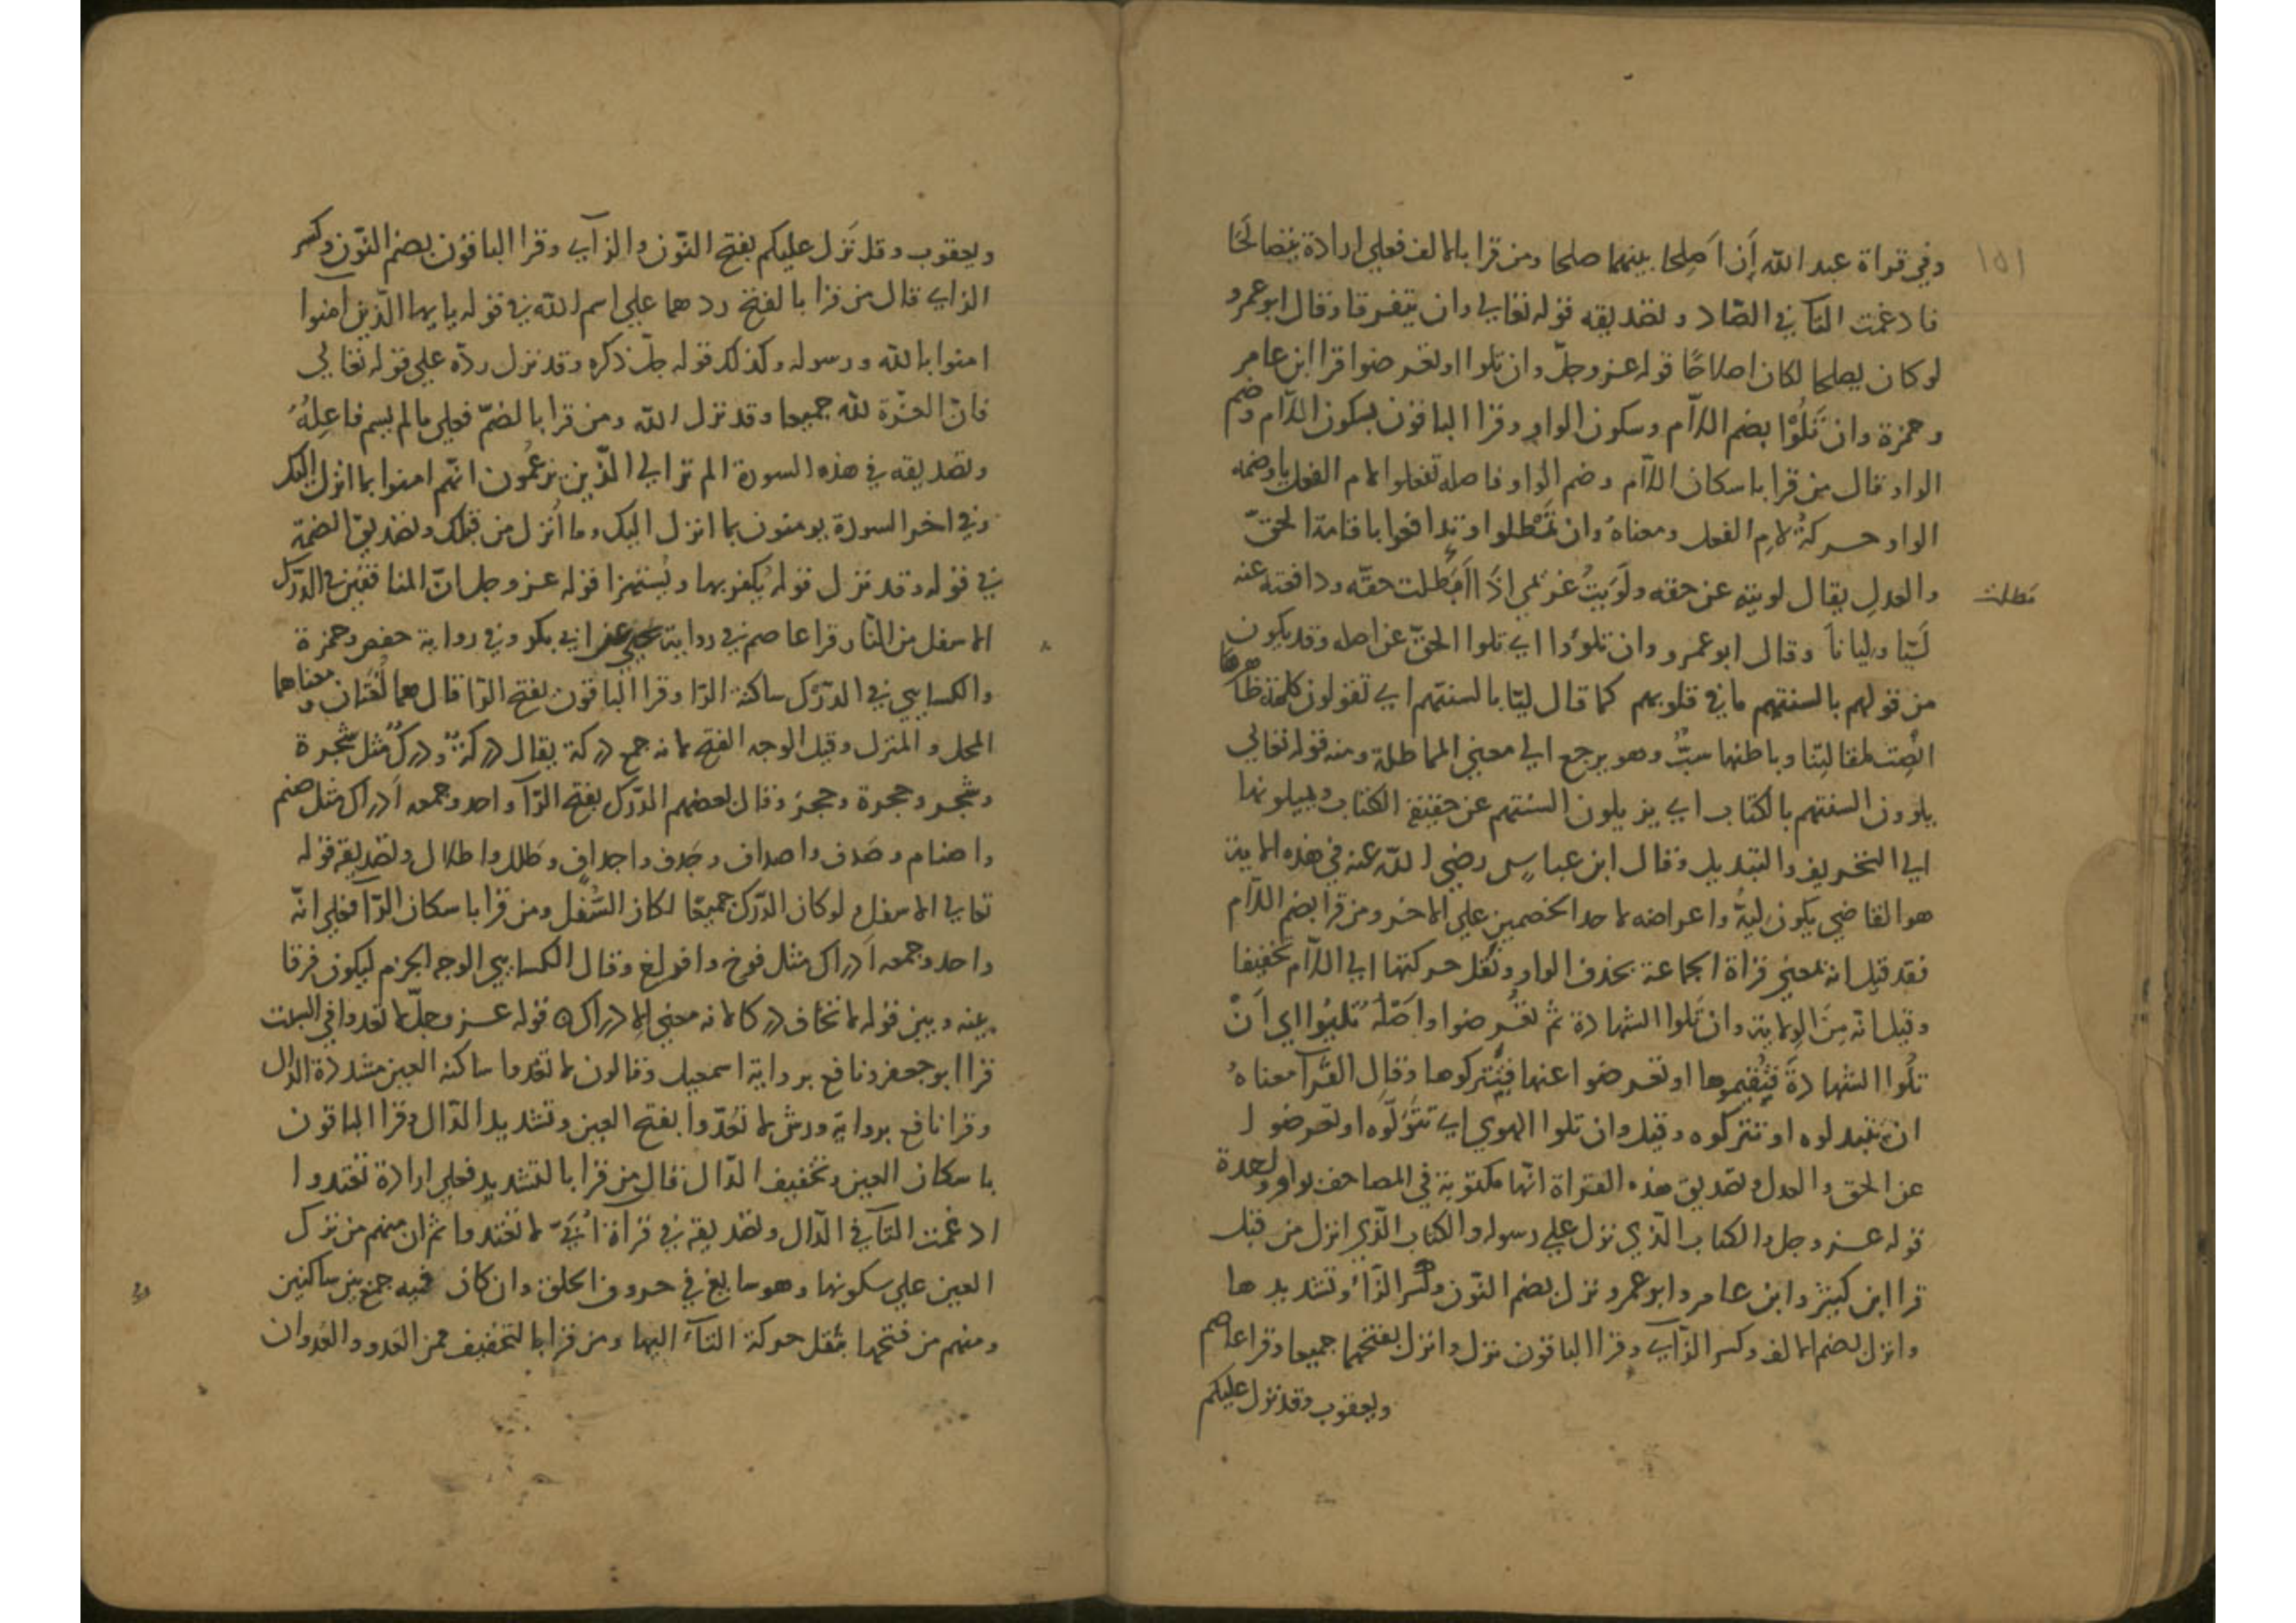 ١٥١
وفي قراة عبد الله إن اَصلحا بينهما صلحا ومن قرا بالالف فعلى ارادة يتصالحَا
فادغمت التآ في الصّاد وتصديقه قوله تعالى وان يتفرقا وقال ابو عمرو
لو كان يصلحا لكان اصلاحًا قوله عز وجلّ وان تلوا او تعرضوا قرا ابن عامر
وحمزة وان تَلُوْا بضم اللآم وسكون الواو وقرا الباقون بسكون اللآم وضم
الواو قال من قرا باسكان اللآم وضم الواو فاصله تفعلوا لام الفعل يا وضمه
الواو حركةُ لامِ الفعل ومعناهُ وان تمْطلوا او تدافعوا باقامة الحقّ
والعدلِ يقال لويته عن حقه ولَوَيتُ غريمي اذَا امَطلت حقّه ودافعته عنه
مطلت
لَيّا وليانا وقال ابو عمرو وان تلوُوا اي تلوا الحقّ عن اصله وقد يكون
من قولهم بالسنتهم ما في قلوبهم كما قال ليّا بالسنتهم اي تقولون كلمة ظاهرها
انصِت لمقالتِنا وباطنها سبٌّ وهو يرجع الى معنى المماطلة ومنه قوله تعالى
يلوون السنتهم بالكتاب اي يزيلون السنتهم عن حقيقة الكتاب ويميلونها
الى التحريف والتبديل وقال ابن عباسٍ رضي الله عنه في هذه الاية
هو القاضي يكون ليهُّ واعراضه لاحد الخصمين على الاخر ومن قرا بضم اللآم
فقد قيل انه بمعنى قراة الجماعة بحذف الواو ونقل حركتها الى اللآم تخفيفا
وقيل انّه مِنَ الولاية وان تَلوا الشهادة ثم تعرضوا واصْلُه تَلِيُوا اي اَنْ
تلُوا الشهادةَ فتُقيموها او تعرضوا عنها فتتركوها وقال الفرّآ معناهُ
ان تبتدلوه او تتركوه وقيل وان تلوا الهوي اي تتَوَلّوه او تعرضوا
عن الحق والعدل وتصديق هذه القراة انّها مكتوبة في المصاحف بواو واحدة
قوله عز وجل والكتاب الّذي نزل علي رسوله والكتاب الّذي انزل من قبل
قرا ابن كثير وابن عامر وابو عمرو نزل بضم النّون وكسر الزّاء وتشديدها
وانزل بضم الالف وكسر الزّاي وقرا الباقون نزل وانزل بفتحهما جميعا وقرا عاصم
ويعقوب وقد نزل عليكم
ويعقوب وقد نَزل عليكم بفتح النّون والزآي وقرا الباقون بضم النّون وكسر
الزاي قال من قرا بالفتح ردهما على اسم الله في قوله يايها الّذين امنوا
امنوا بالله ورسوله وكذلك قوله جلّ ذكره وقد نزل ردّه علي قوله تعالى
فانّ العزّة لله جميعا وقد نزل الله ومن قرا بالضمّ فعلى ما لم يسم فاعِلُهُ
وتصديقه في هذه السورة الم تر الى الّذين يزعُمون انّهم امنوا بما انزل اليك
وفي اخر السورة يومنون بما انزل اليك وما اُنزل من قبلك وتصديق الضمة
في قوله وقد نزل قوله يُكفر بها ويُستهزا قوله عز وجل انّ المنافقين في الدّرك
الاسفل من النّار قرا عاصم في رواية يحيي عن ابي بكر وفي رواية حفص وحمزة
والكسايي في الدّرْك ساكنة الرّا وقرا الباقون بفتح الرّا قال هما لُغتان ومعناهما
المحل والمنزل وقيل الوجه الفتح لانه جمع دركة يقال دركةٌ ودركٌ مثل شجرة
وشجر وحجرة وحجز وقال بعضهم الدّرَك بفتح الرّآ واحد وجمعه اَدراك مثل صنم
واصنام وصَدف واصداف وجَدف واجداف وطلل واطلال وتصديقه قوله
تعالى الاسفل ولو كان الدّرك جميعًا لكان السُّفَل ومن قرا باسكان الرّآ فعلى انّه
واحد وجمعه اَدراك مثل فرخ وافراخ وقال الكسايي الوجه الجزم ليكون فرقا
بينه وبين قوله لا تخاف دركا لانه معنى الادراك قوله عز وجلّ لا تعدوا في السبت
قرا ابو جعفر ونافع برواية اسمعيل وقالون لا تعْدوا ساكنة العين مشددة الدّال
وقرا نافع برواية ورش لا تَعَدّوا بفتح العين وتشديد الدّال وقرا الباقون
باسكان العين وتخفيف الدّال قال من قرا بالتشديد فعلى ارادة تعتدوا
ادغمت التآ في الدّال وتصديقه في قراة اُبيّ لا تعتدوا ثم ان منهم من ترك
العين على سكونها وهو سايغ في حروف الحلق وان كان فيه جمع بين ساكنين
ومنهم من فتحها بنقل حركة التآء اليها ومن قرا بالتخفيف فمن العدو والعُدوان